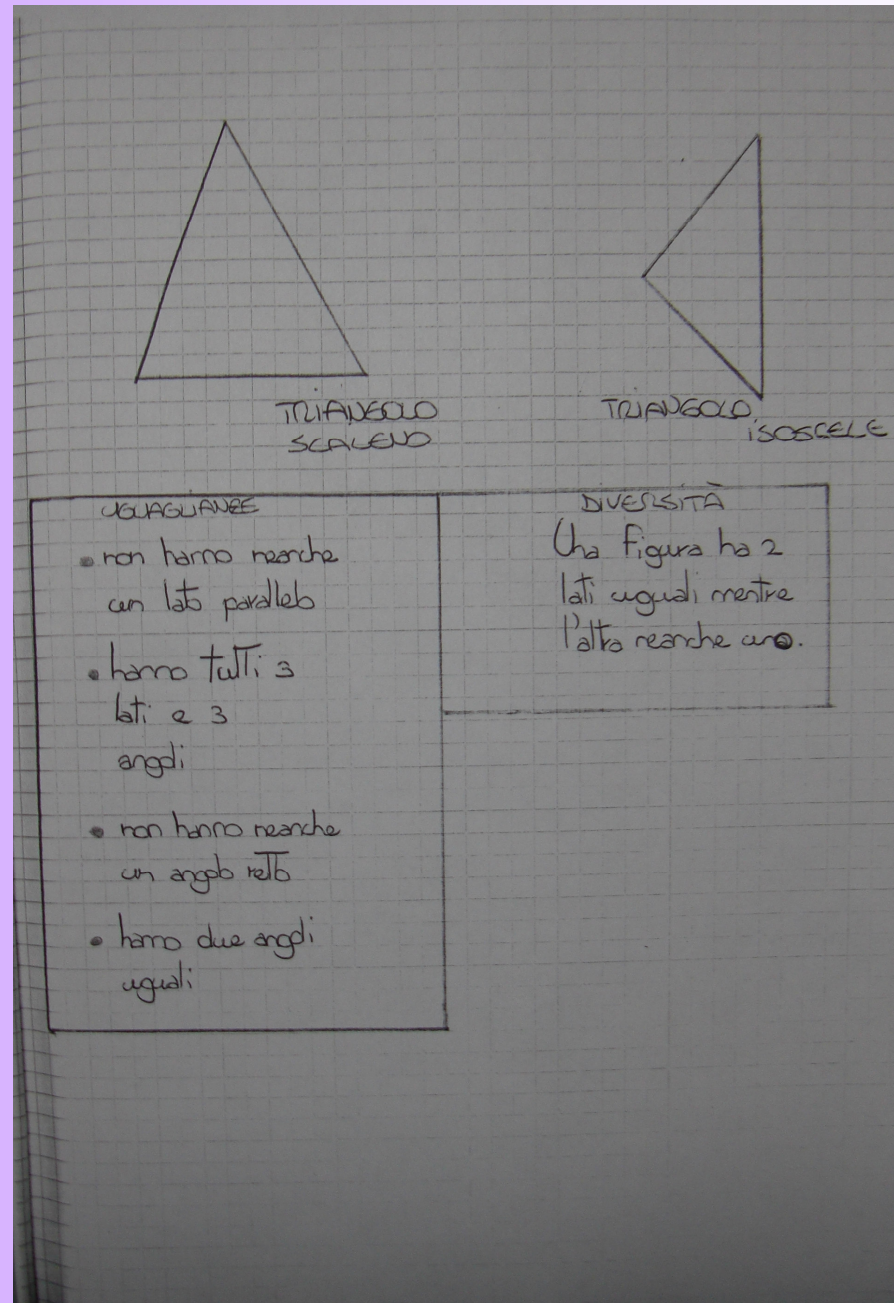 TRIANGOLO
SCALENO
TRIANGOLO
ISOSCELE
UGUAGLIANZE
• non hanno neanche
un lato parallelo
• hanno tutti 3
lati e 3
angoli
• non hanno neanche
un angolo retto
• hanno due angoli
uguali
DIVERSITÀ
Una figura ha 2
lati uguali mentre
l'altra neanche uno.